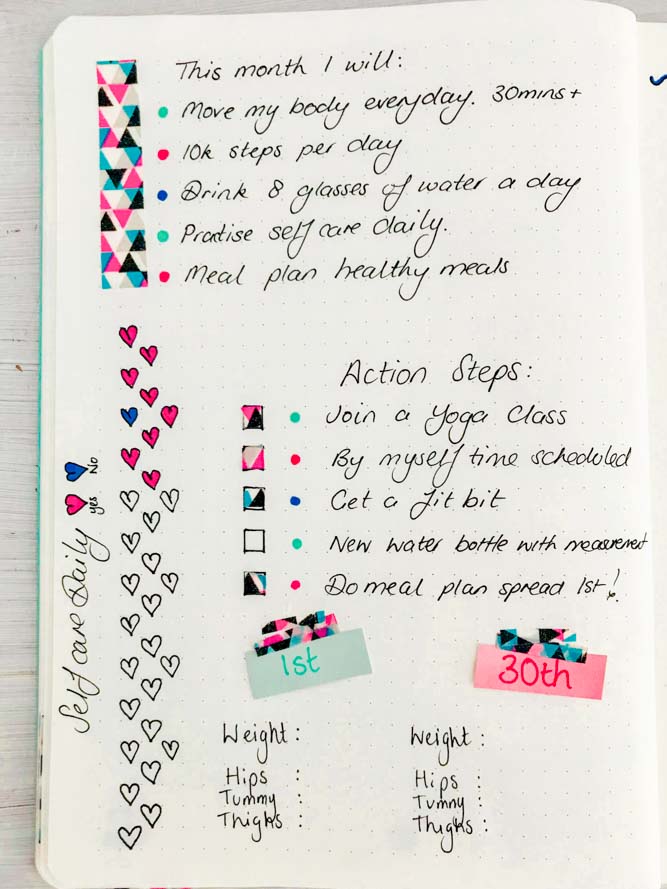 This month I will:
Move my body everyday. 30mins+
10k steps per day
Drink 8 glasses of water a day
Practise self care daily.
Meal plan healthy meals
Action Steps:
Join a Yoga Class
By myself time scheduled
Get a fit bit
New water bottle with measurement
Do meal plan spread 1st!
Self care Daily
yes
No
1st
30th
Weight:
Hips :
Tummy :
Thighs :
Weight:
Hips :
Tummy :
Thighs :